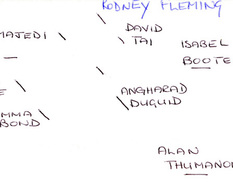 RODNEY FLEMING
MAJEDI
DAVID
TAI
ISABEL
BOOTE
ANGHARAD
DUGUID
MMA
BOND
ALAN
THUMANO